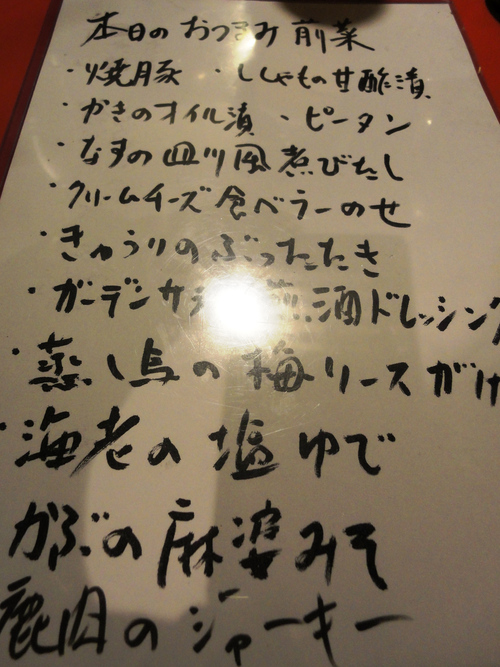 本日のおつまみ前菜
・焼豚 ・ししゃもの甘酢漬
・かきのオイル漬 ・ピータン
・なすの四川風煮びたし
・クリームチーズ食べラーのせ
・きゅうりのぶったたき
・ガーデンサラ 煎酒ドレッシング
・蒸し鳥の梅ソースがけ
・海老の塩ゆで
かぶの麻婆みそ
鹿肉のジャーキー